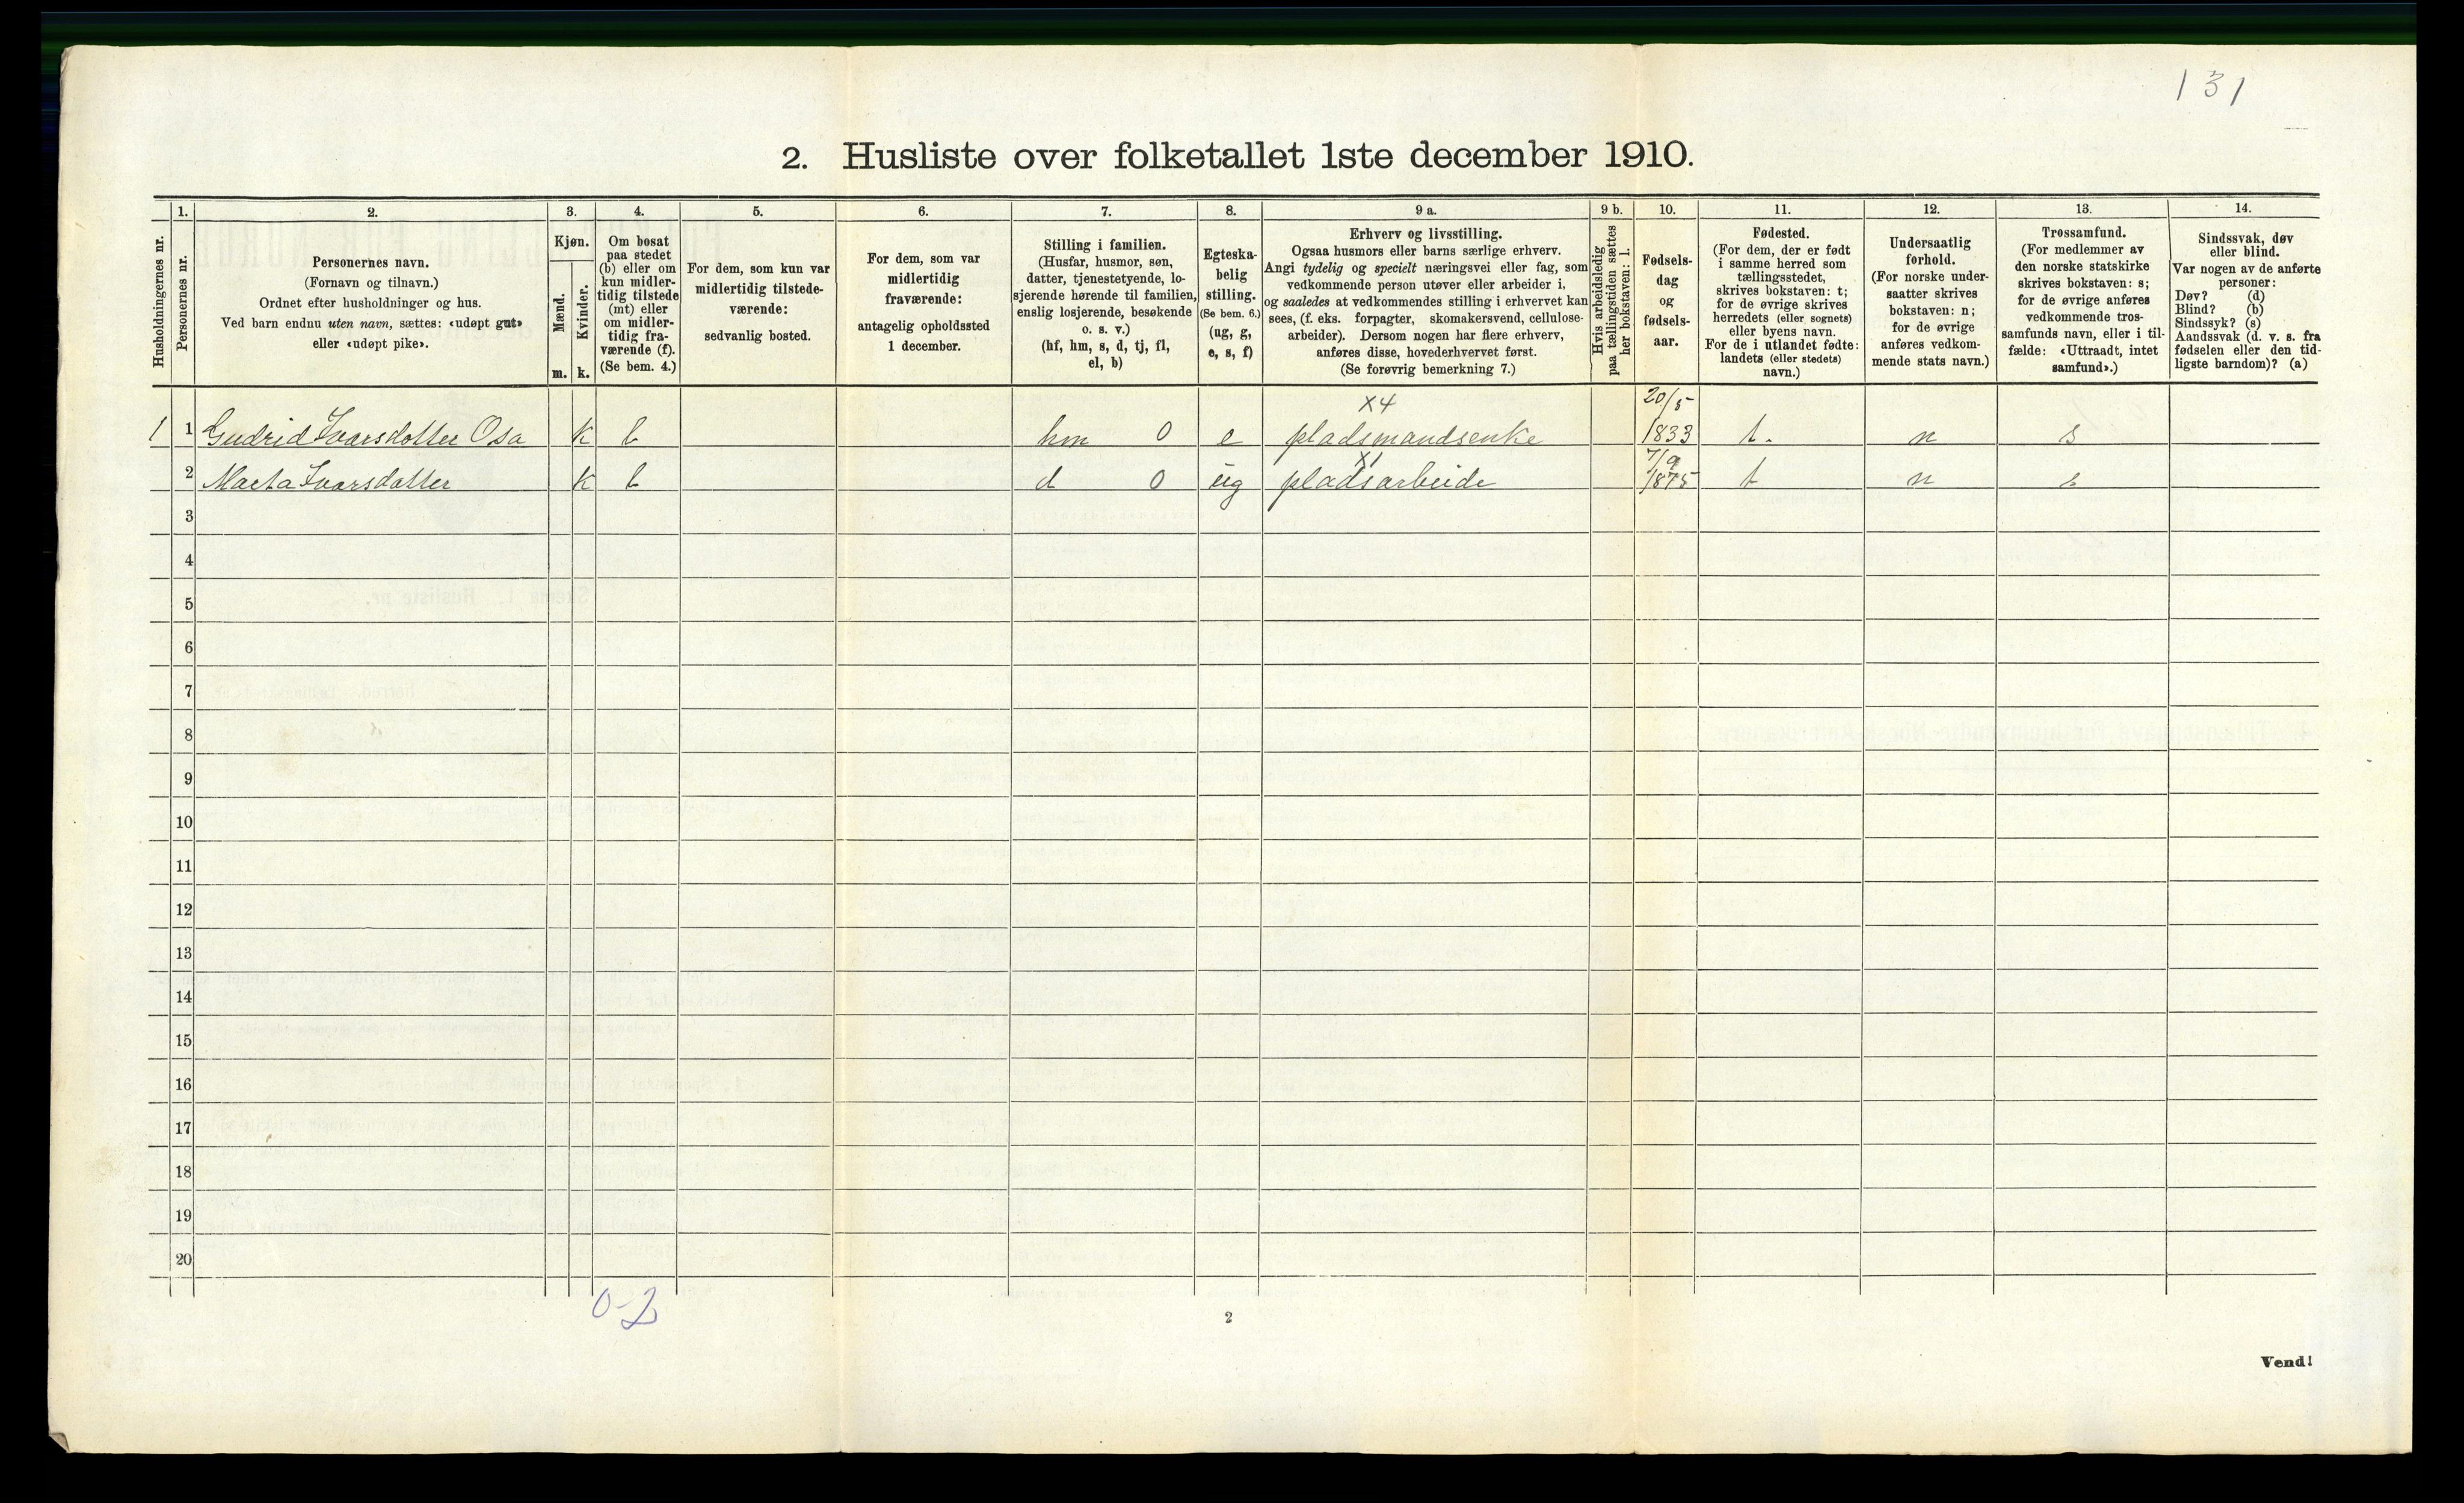 131
2. Husliste over folketallet 1ste december 1910.
Husholdningernes nr.
1.
Personernes nr.
2.
Personernes navn.
(Fornavn og tilnavn.)
Ordnet efter husholdninger og hus.
Ved barn endnu uten navn, sættes: «udøpt gut»
eller «udøpt pike».
3.
Kjøn.
Mænd.
Kvinder.
m. k.
4.
Om bosat
paa stedet
(b) eller om
kun midler-
tidig tilstede
(mt) eller
om midler-
tidig fra-
værende (f).
(Se bem. 4.)
5.
For dem, som kun var
midlertidig tilstede-
værende:
sedvanlig bosted.
6.
For dem, som var
midlertidig
fraværende:
antagelig opholdssted
1 december.
7.
Stilling i familien.
(Husfar, husmor, søn,
datter, tjenestetyende, lo-
sjerende hørende til familien,
enslig losjerende, besøkende
o. s. v.)
(hf, hm, s, d, tj, fl,
el, b)
8.
Egteska-
belig
stilling.
(Se bem. 6.)
(ug, g,
e, s, f)
9 a.
Erhverv og livsstilling.
Ogsaa husmors eller barns særlige erhverv.
Angi tydelig og specielt næringsvei eller fag, som
vedkommende person utøver eller arbeider i,
og saaledes at vedkommendes stilling i erhvervet kan
sees, (f. eks. forpagter, skomakersvend, cellulose-
arbeider). Dersom nogen har flere erhverv,
anføres disse, hovederhvervet først.
(Se forøvrig bemerkning 7.)
9 b.
Hvis arbeidsledig
paa tællingstiden sættes
her bokstaven: l.
10.
Fødsels-
dag
og
fødsels-
aar.
11.
Fødested.
(For dem, der er født
i samme herred som
tællingsstedet,
skrives bokstaven: t;
for de øvrige skrives
herredets (eller sognets)
eller byens navn.
For de i utlandet fødte:
landets (eller stedets)
navn.)
12.
Undersaatlig
forhold.
(For norske under-
saatter skrives
bokstaven: n;
for de øvrige
anføres vedkom-
mende stats navn.)
13.
Trossamfund.
(For medlemmer av
den norske statskirke
skrives bokstaven: s;
for de øvrige anføres
vedkommende tros-
samfunds navn, eller i til-
fælde: «Uttraadt, intet
samfund».)
14.
Sindssvak, døv
eller blind.
Var nogen av de anførte
personer:
Døv? (d)
Blind? (b)
Sindssyk? (s)
Aandssvak (d. v. s. fra
fødselen eller den tid-
ligste barndom)? (a)
x4 20/5
1 1 Gudrid Ivarsdotter Osa k b hm 0 e pladsmandsenke 1833 t. n s
x1 7/9
2 Marta Ivarsdatter k b d 0 ug pladsarbeide 1875 t n s
3
4
5
6
7
8
9
10
11
12
13
14
15
16
17
18
19
20
0-2
2
Vend!